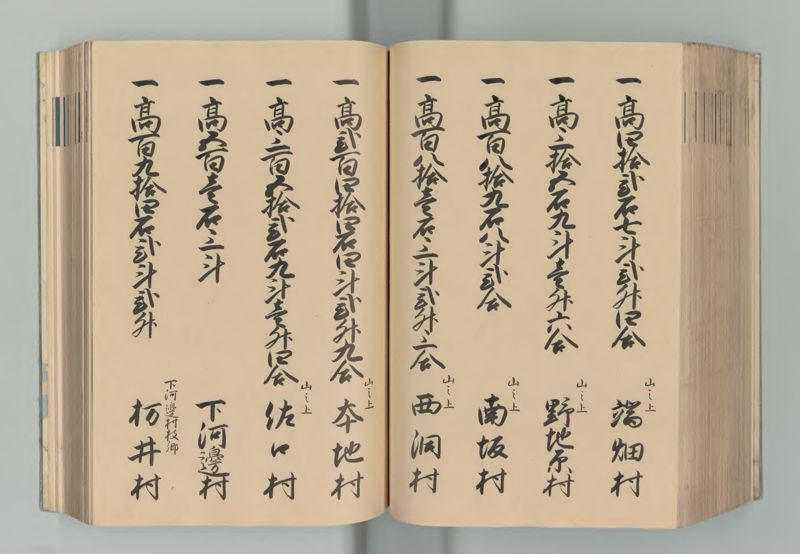 一高四拾弐石七斗弐升四合 山之上 端畑村
一高三拾五石九斗壱升六合 山之上 野地原村
一高百八拾九石八斗弐合 山之上 南坂村
一高百八拾壱石三斗弐升三合 山之上 西洞村
一高弐百四拾四石四斗弐升九合 山之上 本地村
一高三百五拾弐石九斗壱升四合 佐口村
一高五百壱石三斗 下河邊村
一高百九拾四石弐斗弐升 下河邊村枝郷 枋井村